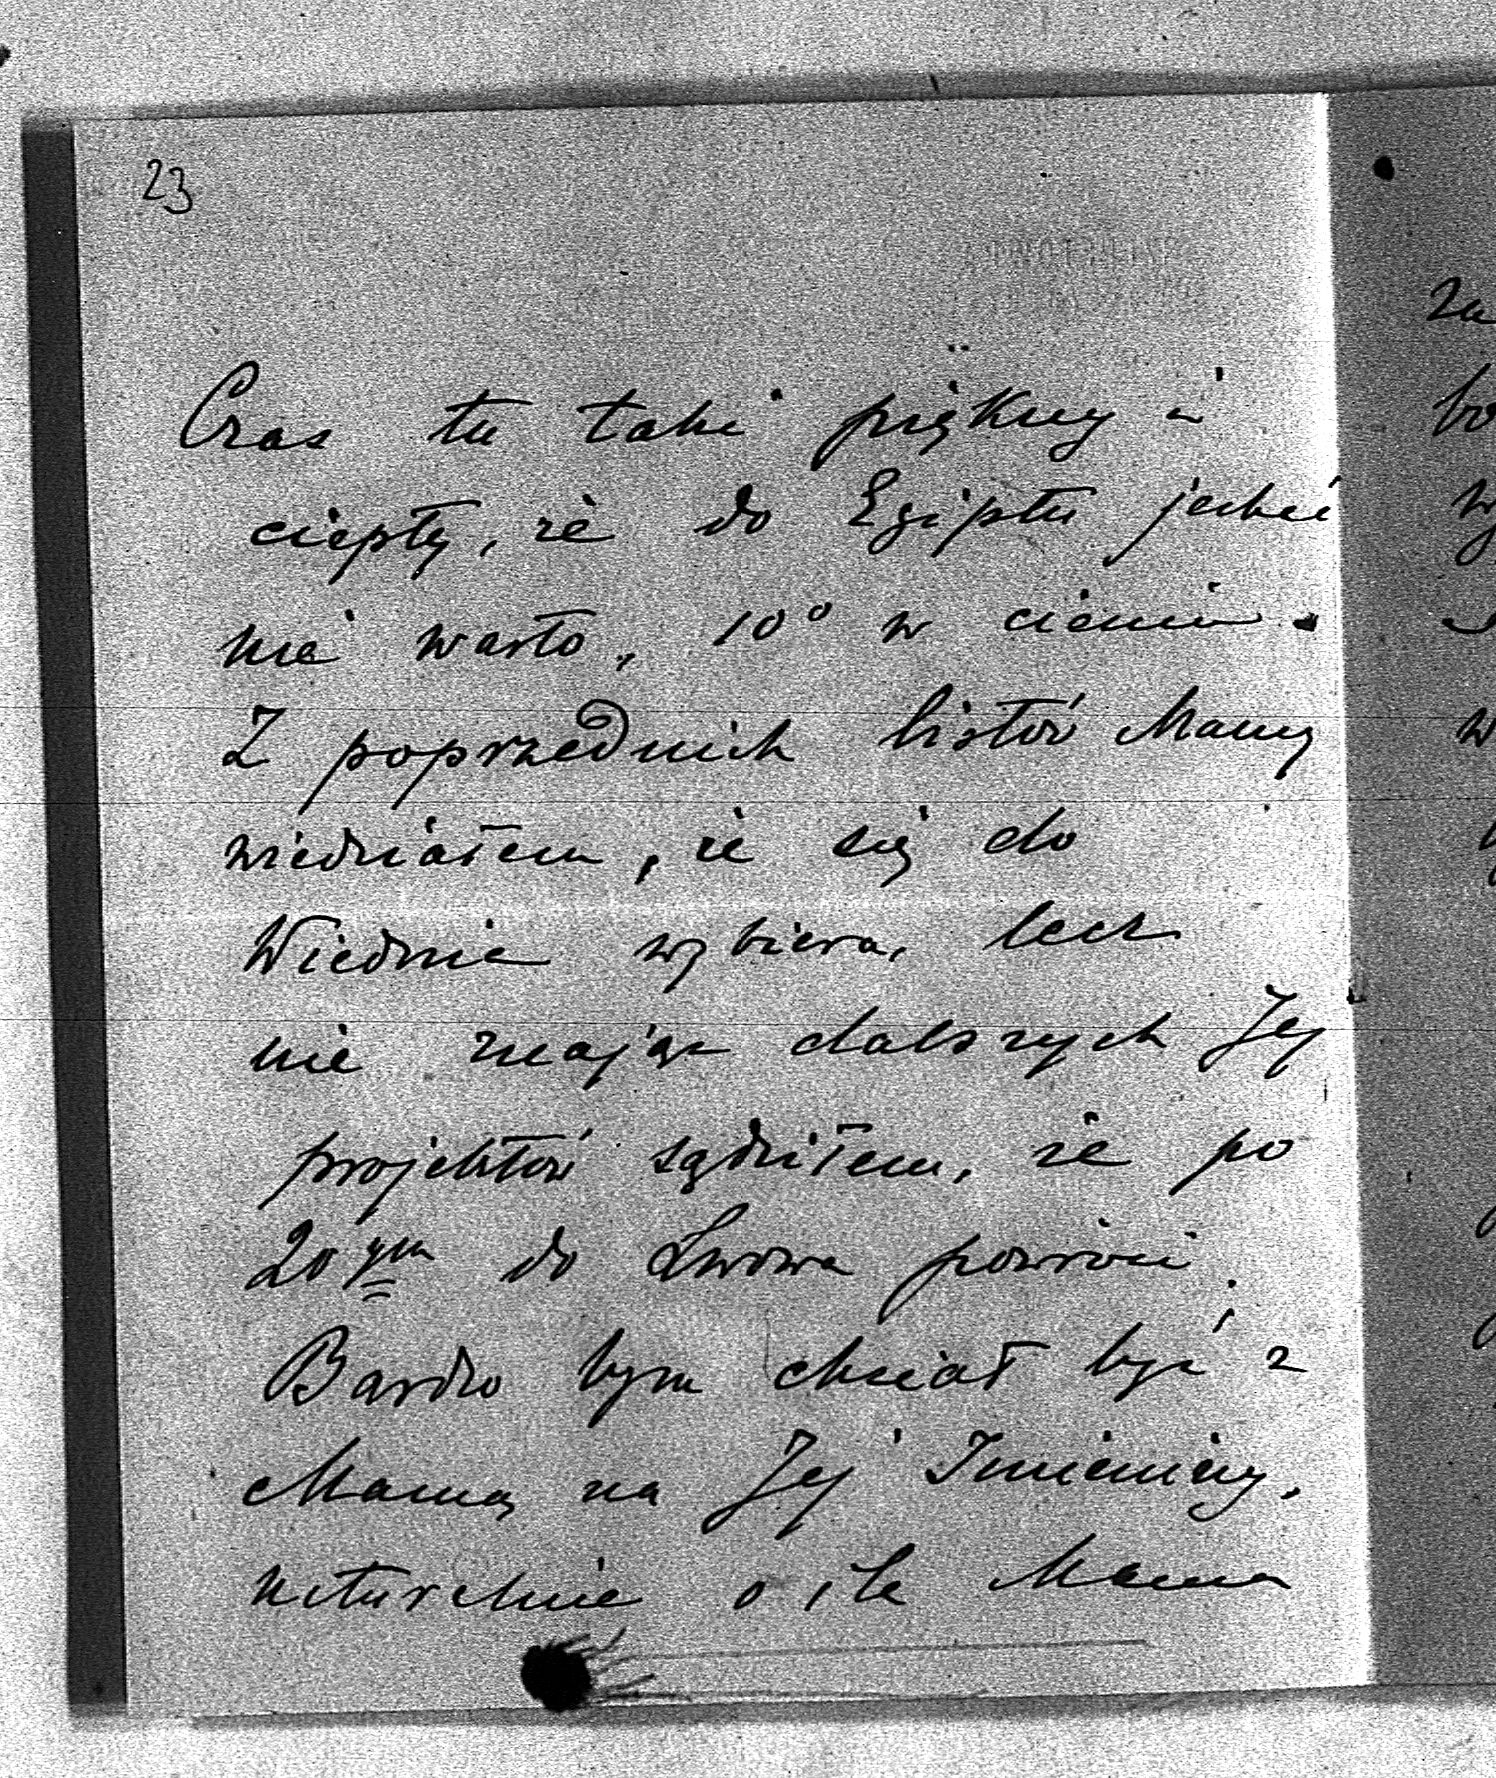 23
Czas tu taki piękny i
ciepły, że do Egiptu jechać
nie warto, 10° w cieniu.
Z poprzednich listów Mamy
wiedziałem, że się do
Wiednia wybiera, lecz
nie znając dalszych Jej
projektów sądziłem, że po
20ym do Lwowa powróci.
Bardzo bym chciał być z
Mamą na Jej Imieniny,
naturalnie o ile Mama